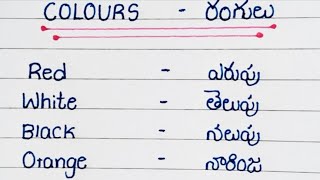 COLOURS - రంగులు
Red - ఎరుపు
White - తెలుపు
Black - నలుపు
Orange - నారింజ